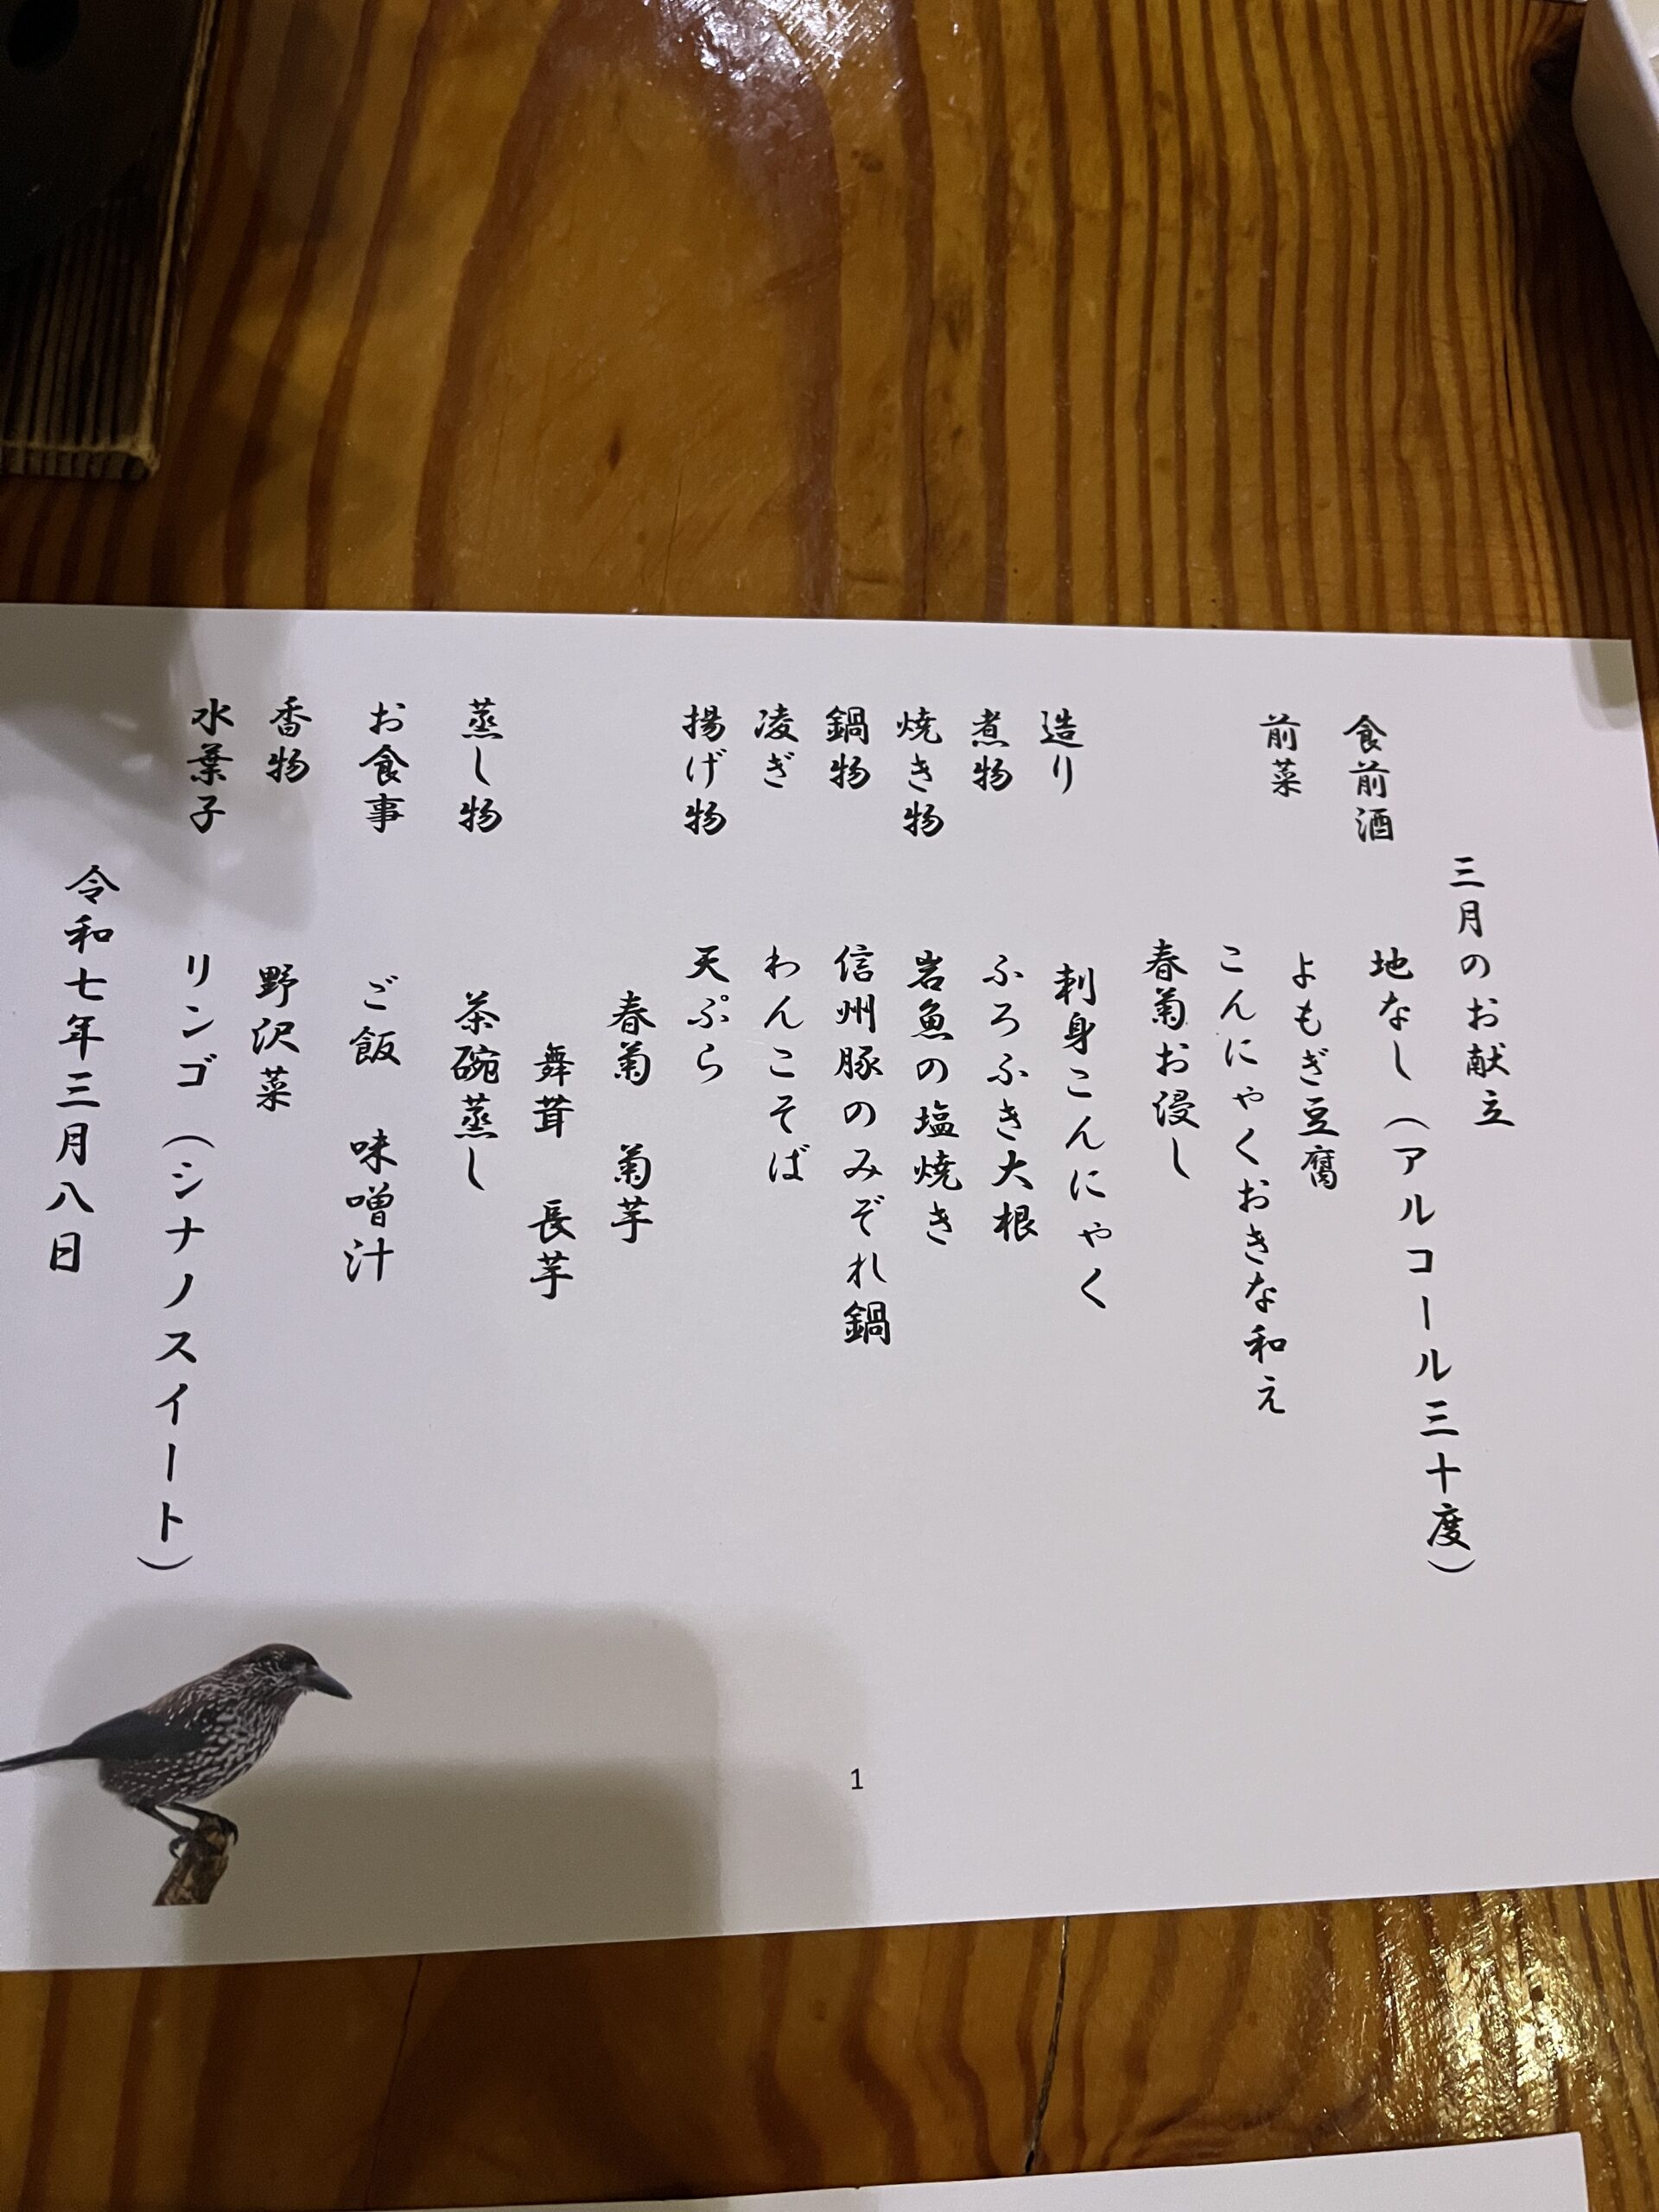 三月のお献立
食前酒 地なし(アルコール三十度)
前菜 よもぎ豆腐
こんにゃくおきな和え
春菊お浸し
造り 刺身こんにゃく
煮物 ふろふき大根
焼き物 岩魚の塩焼き
鍋物 信州豚のみぞれ鍋
凌ぎ わんこそば
揚げ物 天ぷら
春菊 菊芋
舞茸 長芋
蒸し物 茶碗蒸し
お食事 ご飯 味噌汁
香物 野沢菜
水葉子 リンゴ(シナノスイート)
令和七年三月八日
1